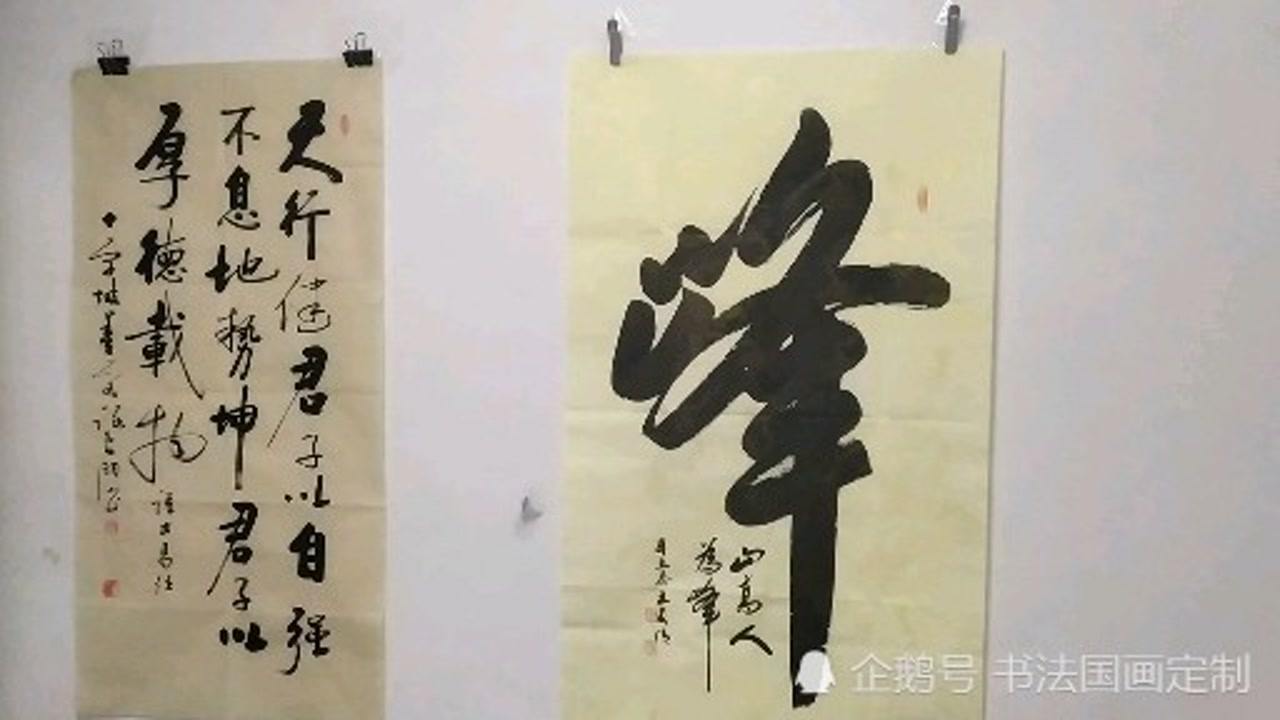 天行健君子以自强
不息地势坤君子以
厚德載物
峰
山高人
為峰
企鹅号 书法国画定制